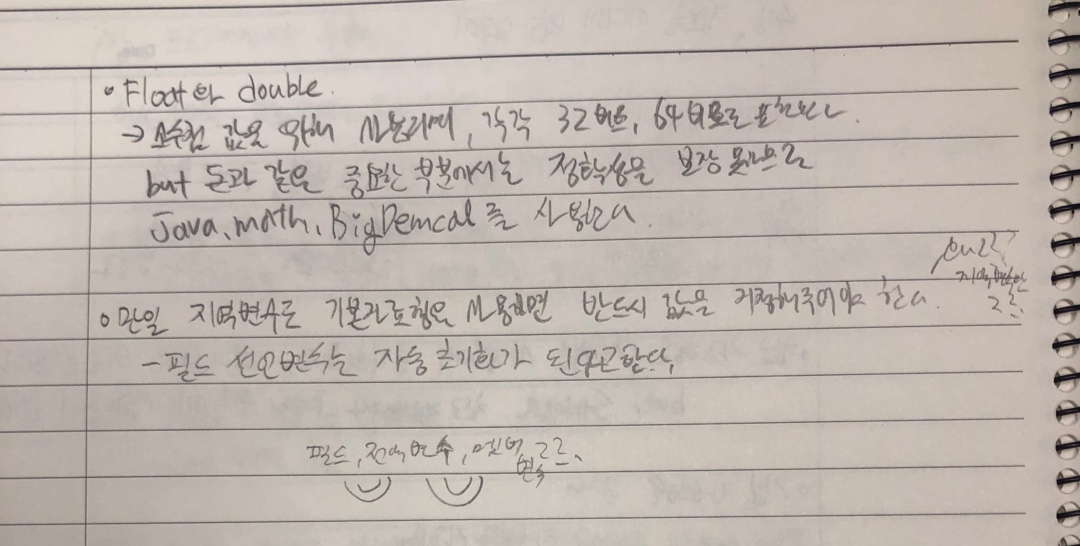 • Float와 double.
→ 소수점 값을 위해 사용되며, 각각 32비트, 64비트로 표현된다.
but 돈과 같은 중요한 부분에서는 정확성을 보장 못하므로
Java.math.BigDemcal를 사용한다.
왜그러지?
지역변수만
◦ 만일 지역변수로 기본자료형을 사용하면 반드시 값을 지정해주어야 한다.
- 필드 선언변수는 자동 초기화가 된다고한다.
필드, 전역변수, 멤버
변수